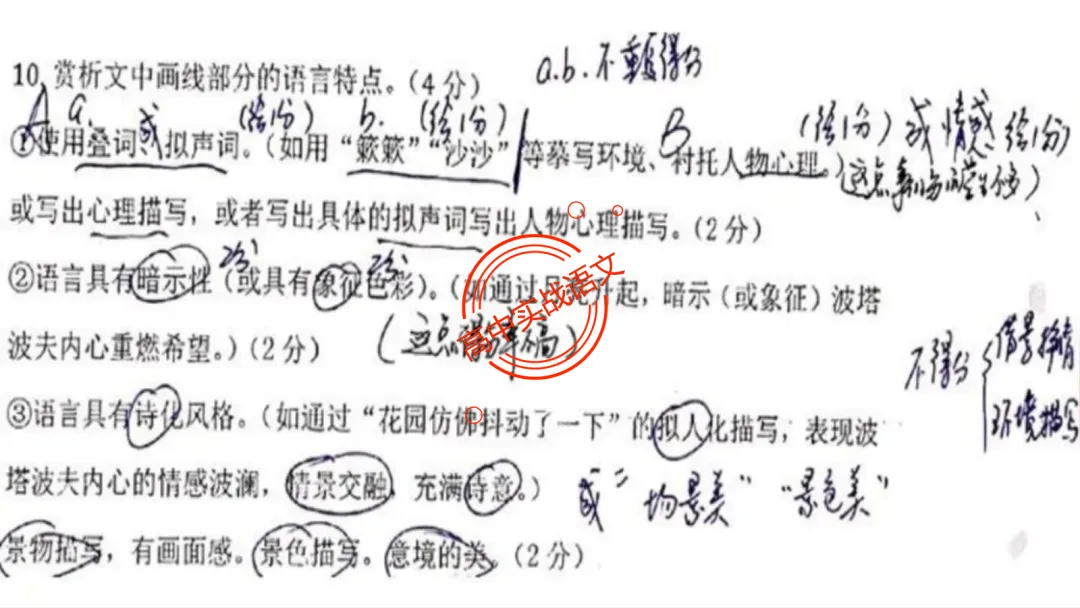 a.b.不重复得分
10. 赏析文中画线部分的语言特点。(4分)
A a. 或 (给1分) b. (给1分) B (给1分) 或情感 给1分)
①使用叠词 拟声词。(如用“簌簌”“沙沙”等摹写环境、衬托人物心理。)
或写出心理描写，或者写出具体的拟声词写出人物心理描写。(2分)
2分 2分
②语言具有暗示性 (或具有象征色彩)。(如通过 起，暗示(或象征)波塔
波夫内心重燃希望。)(2分) (这点得分率不高)
不得分 { 借景抒情
环境描写
③语言具有诗化风格。(如通过“花园仿佛抖动了一下”的拟人化描写，表现波
塔波夫内心的情感波澜，情景交融，充满诗意。) 或“场景美”“景色美”
景物描写，有画面感。景色描写。意境的美。(2分)
高中实战语文